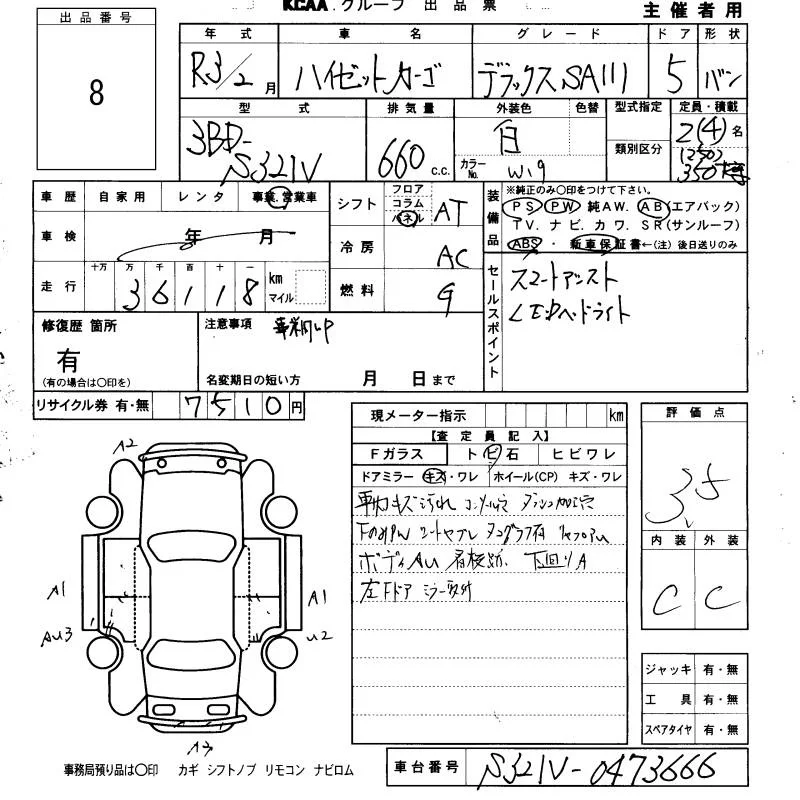 KCAA グループ 出品票
主催者用
出品番号
8
年式 車名 グレード ドア 形状
R3/2月 ハイゼットカーゴ デラックスSAIII 5 バン
型式 排気量 外装色 色替 型式指定 定員・積載
3BD-
S321V
660 c.c.
白
カラーNo. W19
類別区分
2(4)名
350
車歴 自家用 レンタ 事業.営業車
車検 年 月
走行 十万 万 千 百 十 一
36118 km マイル
シフト フロア コラム パネル AT
冷房 AC
燃料 G
装備品
※純正のみ〇印をつけて下さい。
PS PW 純AW. AB(エアバック)
TV. ナビ. カワ. SR(サンルーフ)
ABS・新車保証書←(注)後日送りのみ
セールスポイント
スマートアシスト
LEDヘッドライト
修復歴 箇所
有
(有の場合は〇印を)
注意事項
名変期日の短い方 月 日まで
リサイクル券 有・無 7510円
現メーター指示 km
【査定員記入】
Fガラス トビ石 ヒビワレ
ドアミラー キズ・ワレ ホイール(CP) キズ・ワレ
内キズ汚れ
ボディAU 看板跡. 下回りA
左Fドア ミラー取付
評価点
3.5
内装 外装
C C
ジャッキ 有・無
工具 有・無
スペアタイヤ 有・無
A2
A1
AU3
A1
U2
A3
事務局預り品は〇印 カギ シフトノブ リモコン ナビロム
車台番号 S321V-0473666